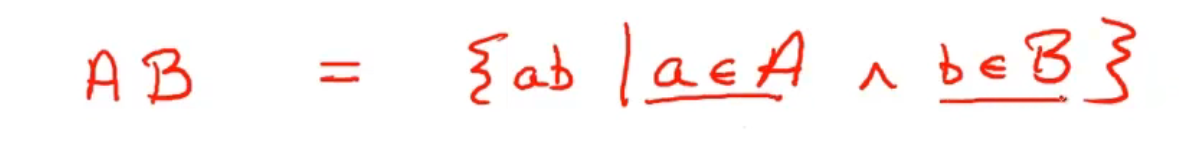 AB = {ab | a ∈ A ∧ b ∈ B}